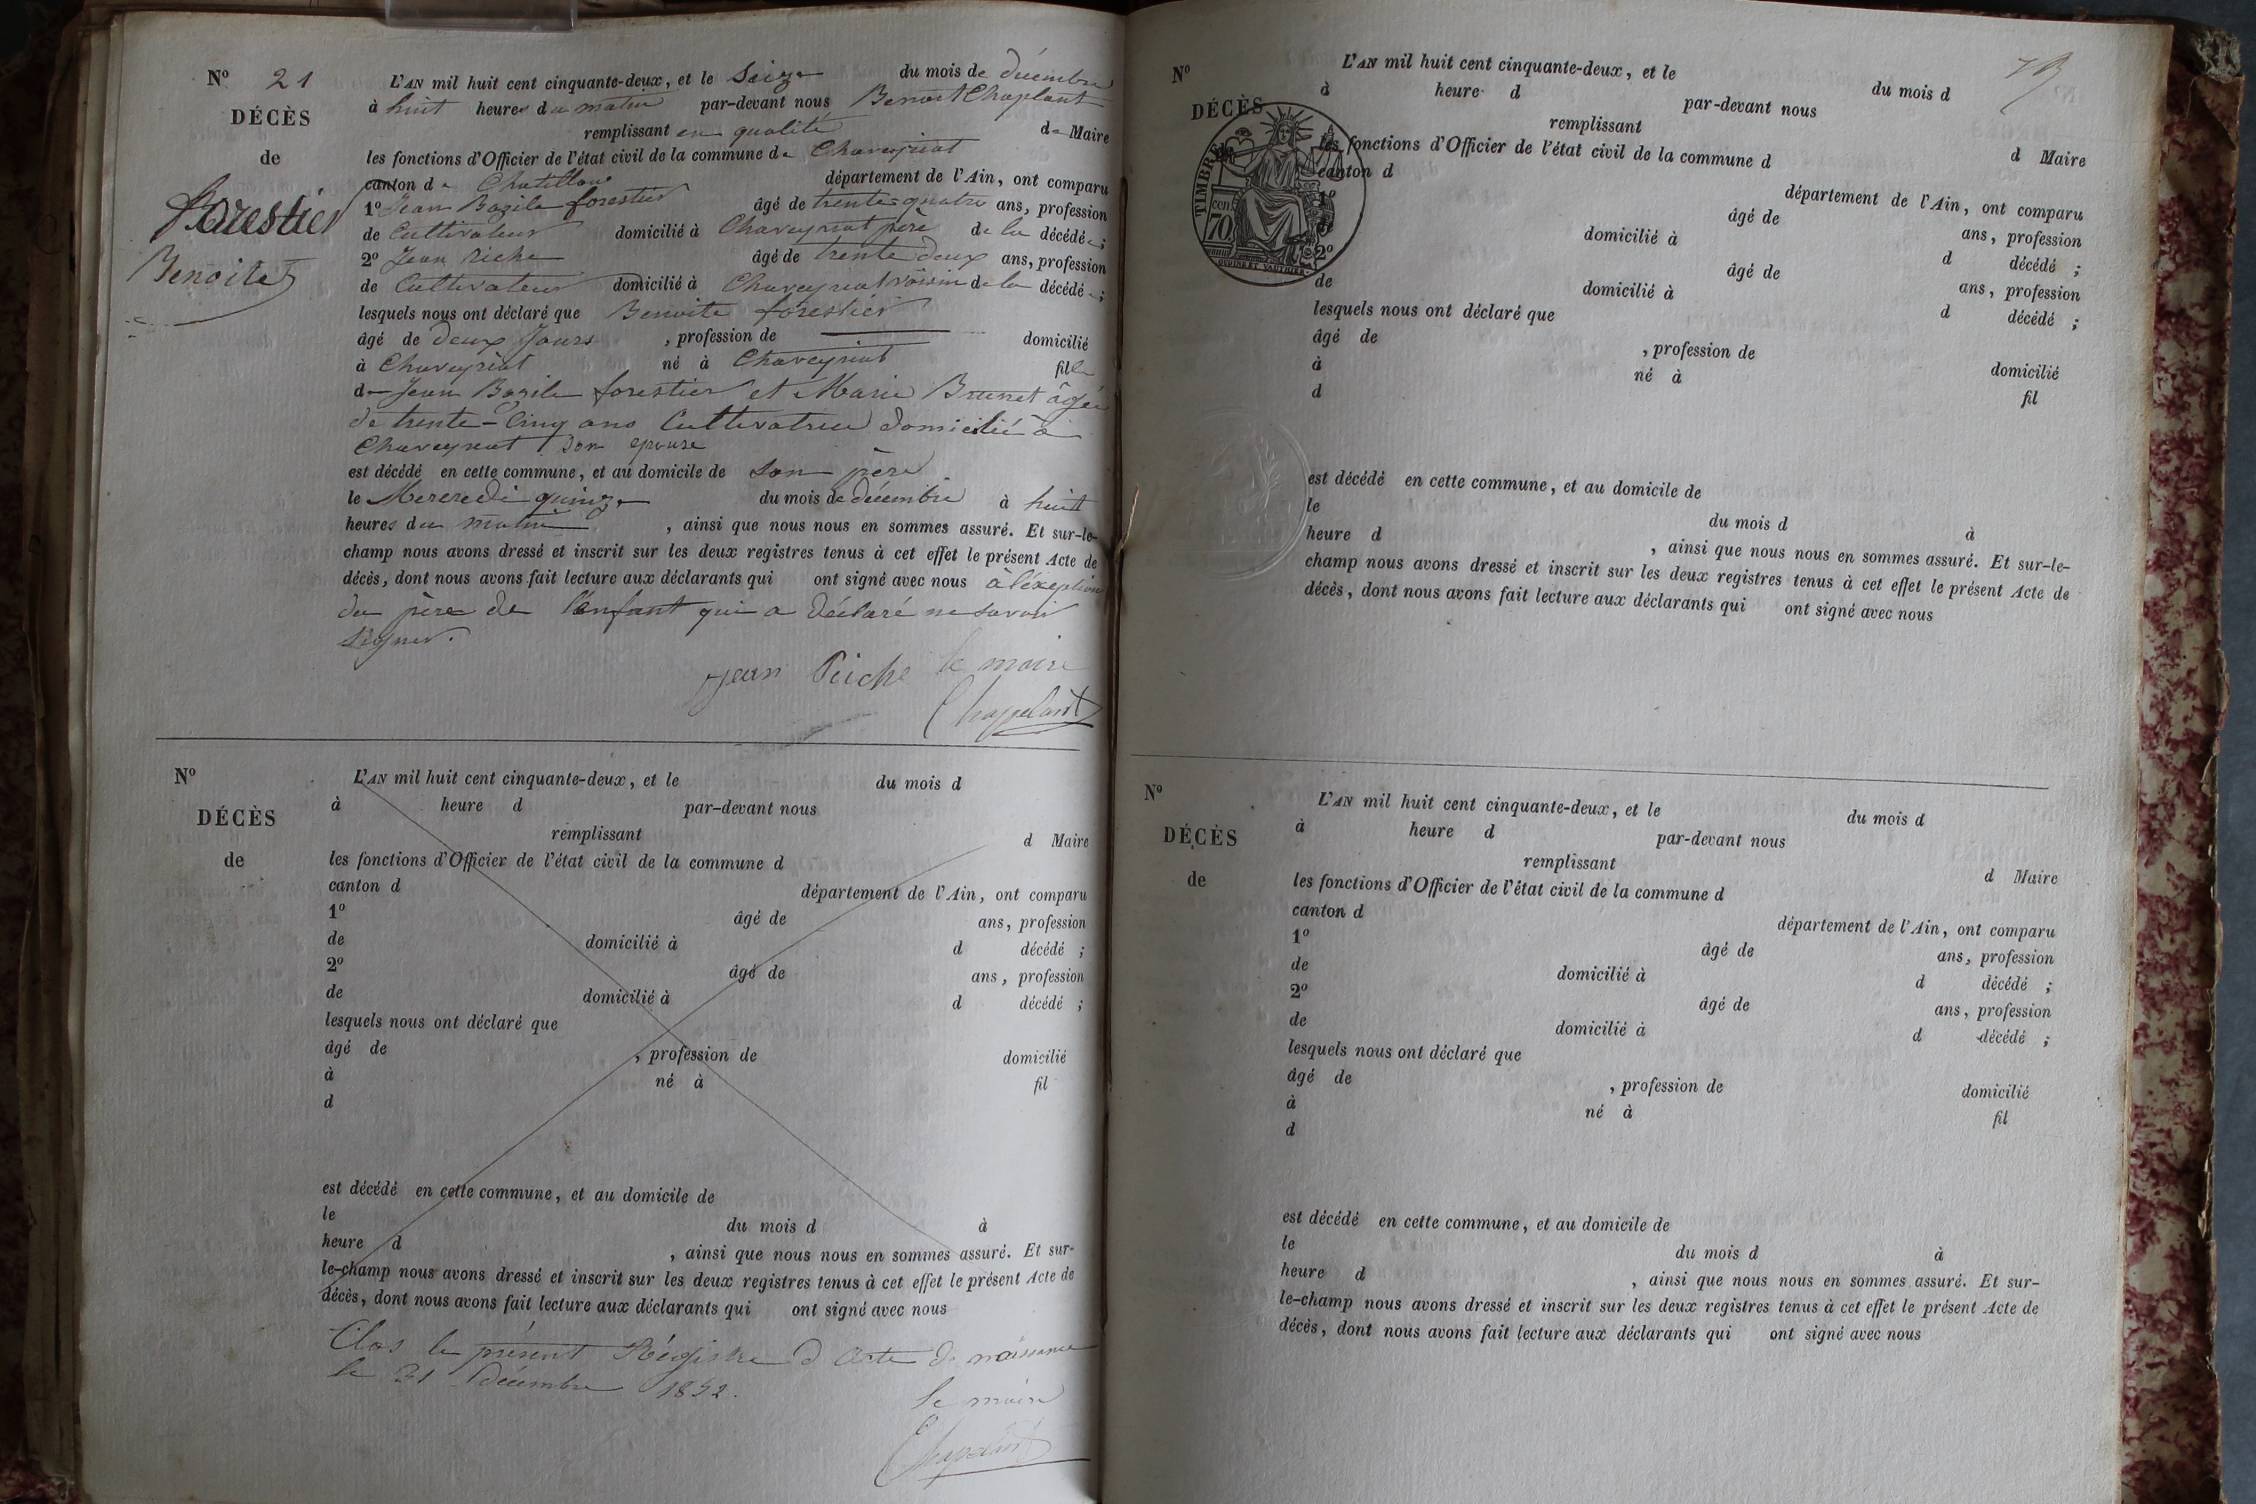 N° 21
DÉCÈS
de
Forestier
Benoite
L'AN mil huit cent cinquante-deux, et le Seize du mois de décembre
à huit heures du matin par-devant nous Benoit Chaplant
remplissant en qualité de Maire
les fonctions d'Officier de l'état civil de la commune de Chaveyriat
canton de Chatillon département de l'Ain, ont comparu
1° Jean Bazile forestier âgé de trente-quatre ans, profession
de Cultivateur domicilié à Chaveyriat père de la décédée;
2° Jean Riche âgé de trente deux ans, profession
de Cultivateur domicilié à Chaveyriat voisin de la décédée;
lesquels nous ont déclaré que Benoite forestier
âgé de deux Jours , profession de domicilié
à Chaveyriat né à Chaveyriat fille
de Jean Bazile forestier et Marie Brunet âgée
de trente-Cinq ans Cultivatrice domicilié à
Chaveyriat son épouse
est décédé en cette commune, et au domicile de son père
le Mercredi quinze du mois de décembre à huit
heures du matin , ainsi que nous nous en sommes assuré. Et sur-le-
champ nous avons dressé et inscrit sur les deux registres tenus à cet effet le présent Acte de
décès, dont nous avons fait lecture aux déclarants qui ont signé avec nous à l'éxeption
du père de l'enfant qui a déclaré ne savoir
signer.
Jean Riche le maire
Chappelant
N°
DÉCÈS
de
L'AN mil huit cent cinquante-deux, et le du mois d
à heure d par-devant nous
remplissant d Maire
les fonctions d'Officier de l'état civil de la commune d
canton d département de l'Ain, ont comparu
1° âgé de ans, profession
de domicilié à d décédé ;
2° âgé de ans, profession
de domicilié à d décédé ;
lesquels nous ont déclaré que
âgé de , profession de domicilié
à né à fil
d
est décédé en cette commune, et au domicile de
le du mois d à
heure d , ainsi que nous nous en sommes assuré. Et sur-
le-champ nous avons dressé et inscrit sur les deux registres tenus à cet effet le présent Acte de
décès, dont nous avons fait lecture aux déclarants qui ont signé avec nous
Clos le présent Régistre d acte de naissance
le 31 décembre 1852.
le maire
Chapelant
N°
DÉCÈS
TIMBRE
cen.
70
L'AN mil huit cent cinquante-deux, et le du mois d
à heure d par-devant nous
remplissant d Maire
les fonctions d'Officier de l'état civil de la commune d
canton d département de l'Ain, ont comparu
1° âgé de ans, profession
domicilié à d décédé ;
2° âgé de ans, profession
de domicilié à d décédé ;
lesquels nous ont déclaré que
âgé de , profession de domicilié
à né à fil
d
est décédé en cette commune, et au domicile de
le du mois d à
heure d , ainsi que nous nous en sommes assuré. Et sur-le-
champ nous avons dressé et inscrit sur les deux registres tenus à cet effet le présent Acte de
décès, dont nous avons fait lecture aux déclarants qui ont signé avec nous
N°
DÉCÈS
de
L'AN mil huit cent cinquante-deux, et le du mois d
à heure d par-devant nous
remplissant d Maire
les fonctions d'Officier de l'état civil de la commune d
canton d département de l'Ain, ont comparu
1° âgé de ans, profession
de domicilié à d décédé ;
2° âgé de ans, profession
de domicilié à d décédé ;
lesquels nous ont déclaré que
âgé de , profession de domicilié
à né à fil
d
est décédé en cette commune, et au domicile de
le du mois d à
heure d , ainsi que nous nous en sommes assuré. Et sur-
le-champ nous avons dressé et inscrit sur les deux registres tenus à cet effet le présent Acte de
décès, dont nous avons fait lecture aux déclarants qui ont signé avec nous